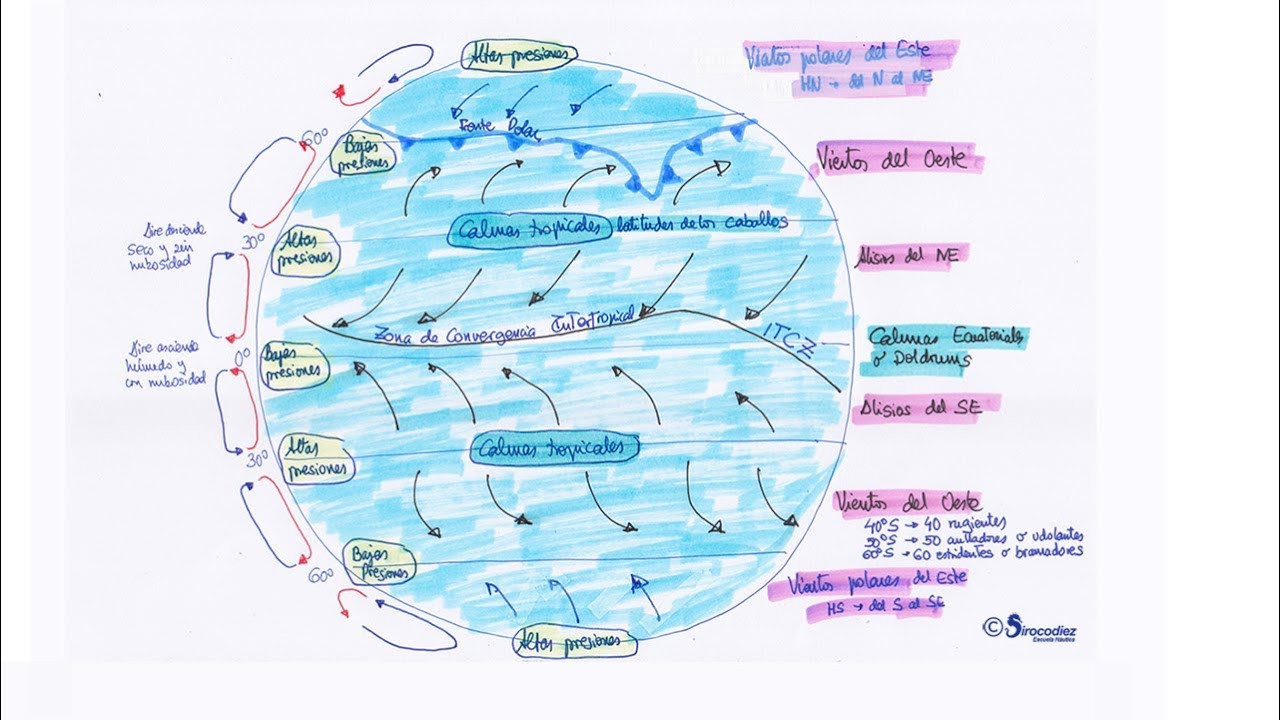 Altas presiones
Vientos polares del Este
HN → del N al NE
60º
Frente Polar
Bajas
presiones
Vientos del Oeste
Calmas tropicales latitudes de los caballos
Aire desciende
seco y sin
nubosidad
30º
Altas
presiones
Alisios del NE
Zona de Convergencia Intertropical
ITCZ
Calmas Ecuatoriales
o Doldrums
Aire asciende
húmedo y
con nubosidad
0º
Bajas
presiones
Alisios del SE
30º
Altas
presiones
Calmas tropicales
Vientos del Oeste
40ºS → 40 rugientes
50ºS → 50 aulladores o ululantes
60ºS → 60 estridentes o bramadores
60º
Bajas
Presiones
Vientos polares del Este
HS → del S al SE
Altas presiones
© Sirocodiez
Escuela Náutica